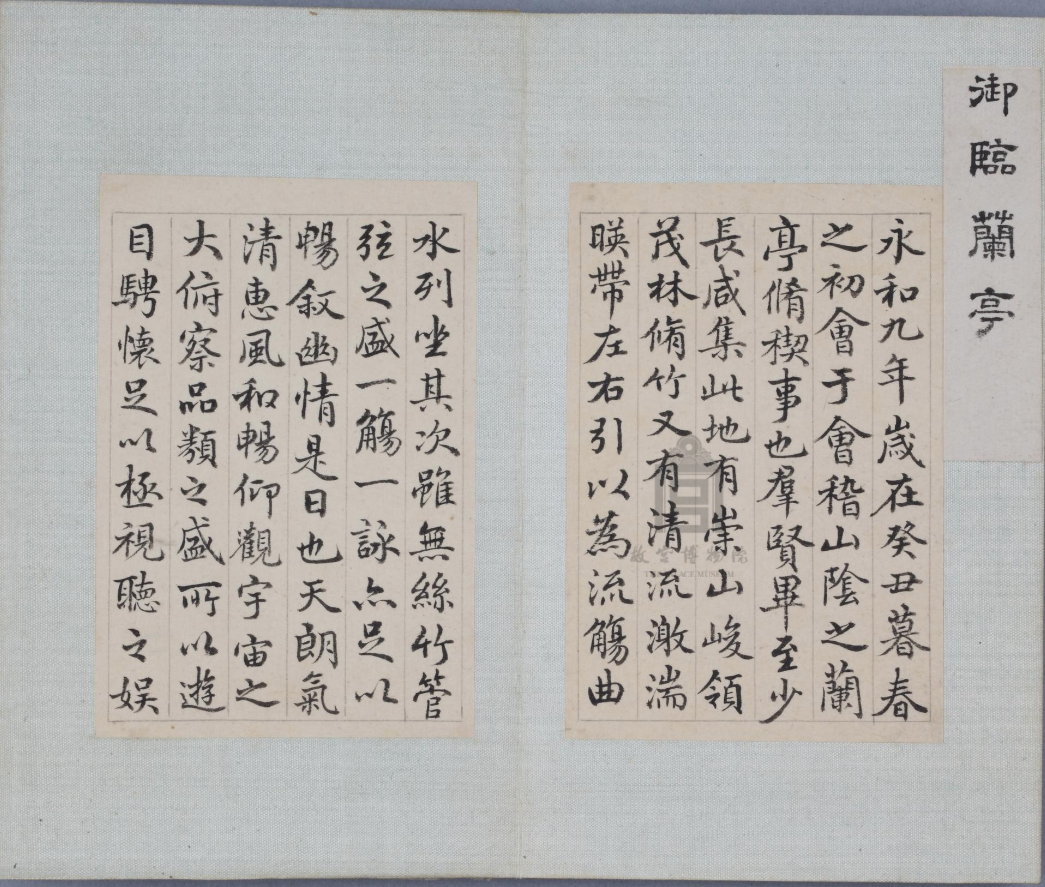 御臨蘭亭
永和九年歲在癸丑暮春
之初會于會稽山陰之蘭
亭脩稧事也羣賢畢至少
長咸集此地有崇山峻領
茂林脩竹又有清流激湍
暎帶左右引以為流觴曲
水列坐其次雖無絲竹管
弦之盛一觴一詠亦足以
暢叙幽情是日也天朗氣
清惠風和暢仰觀宇宙之
大俯察品類之盛所以遊
目騁懷足以極視聽之娱
故宫博物院